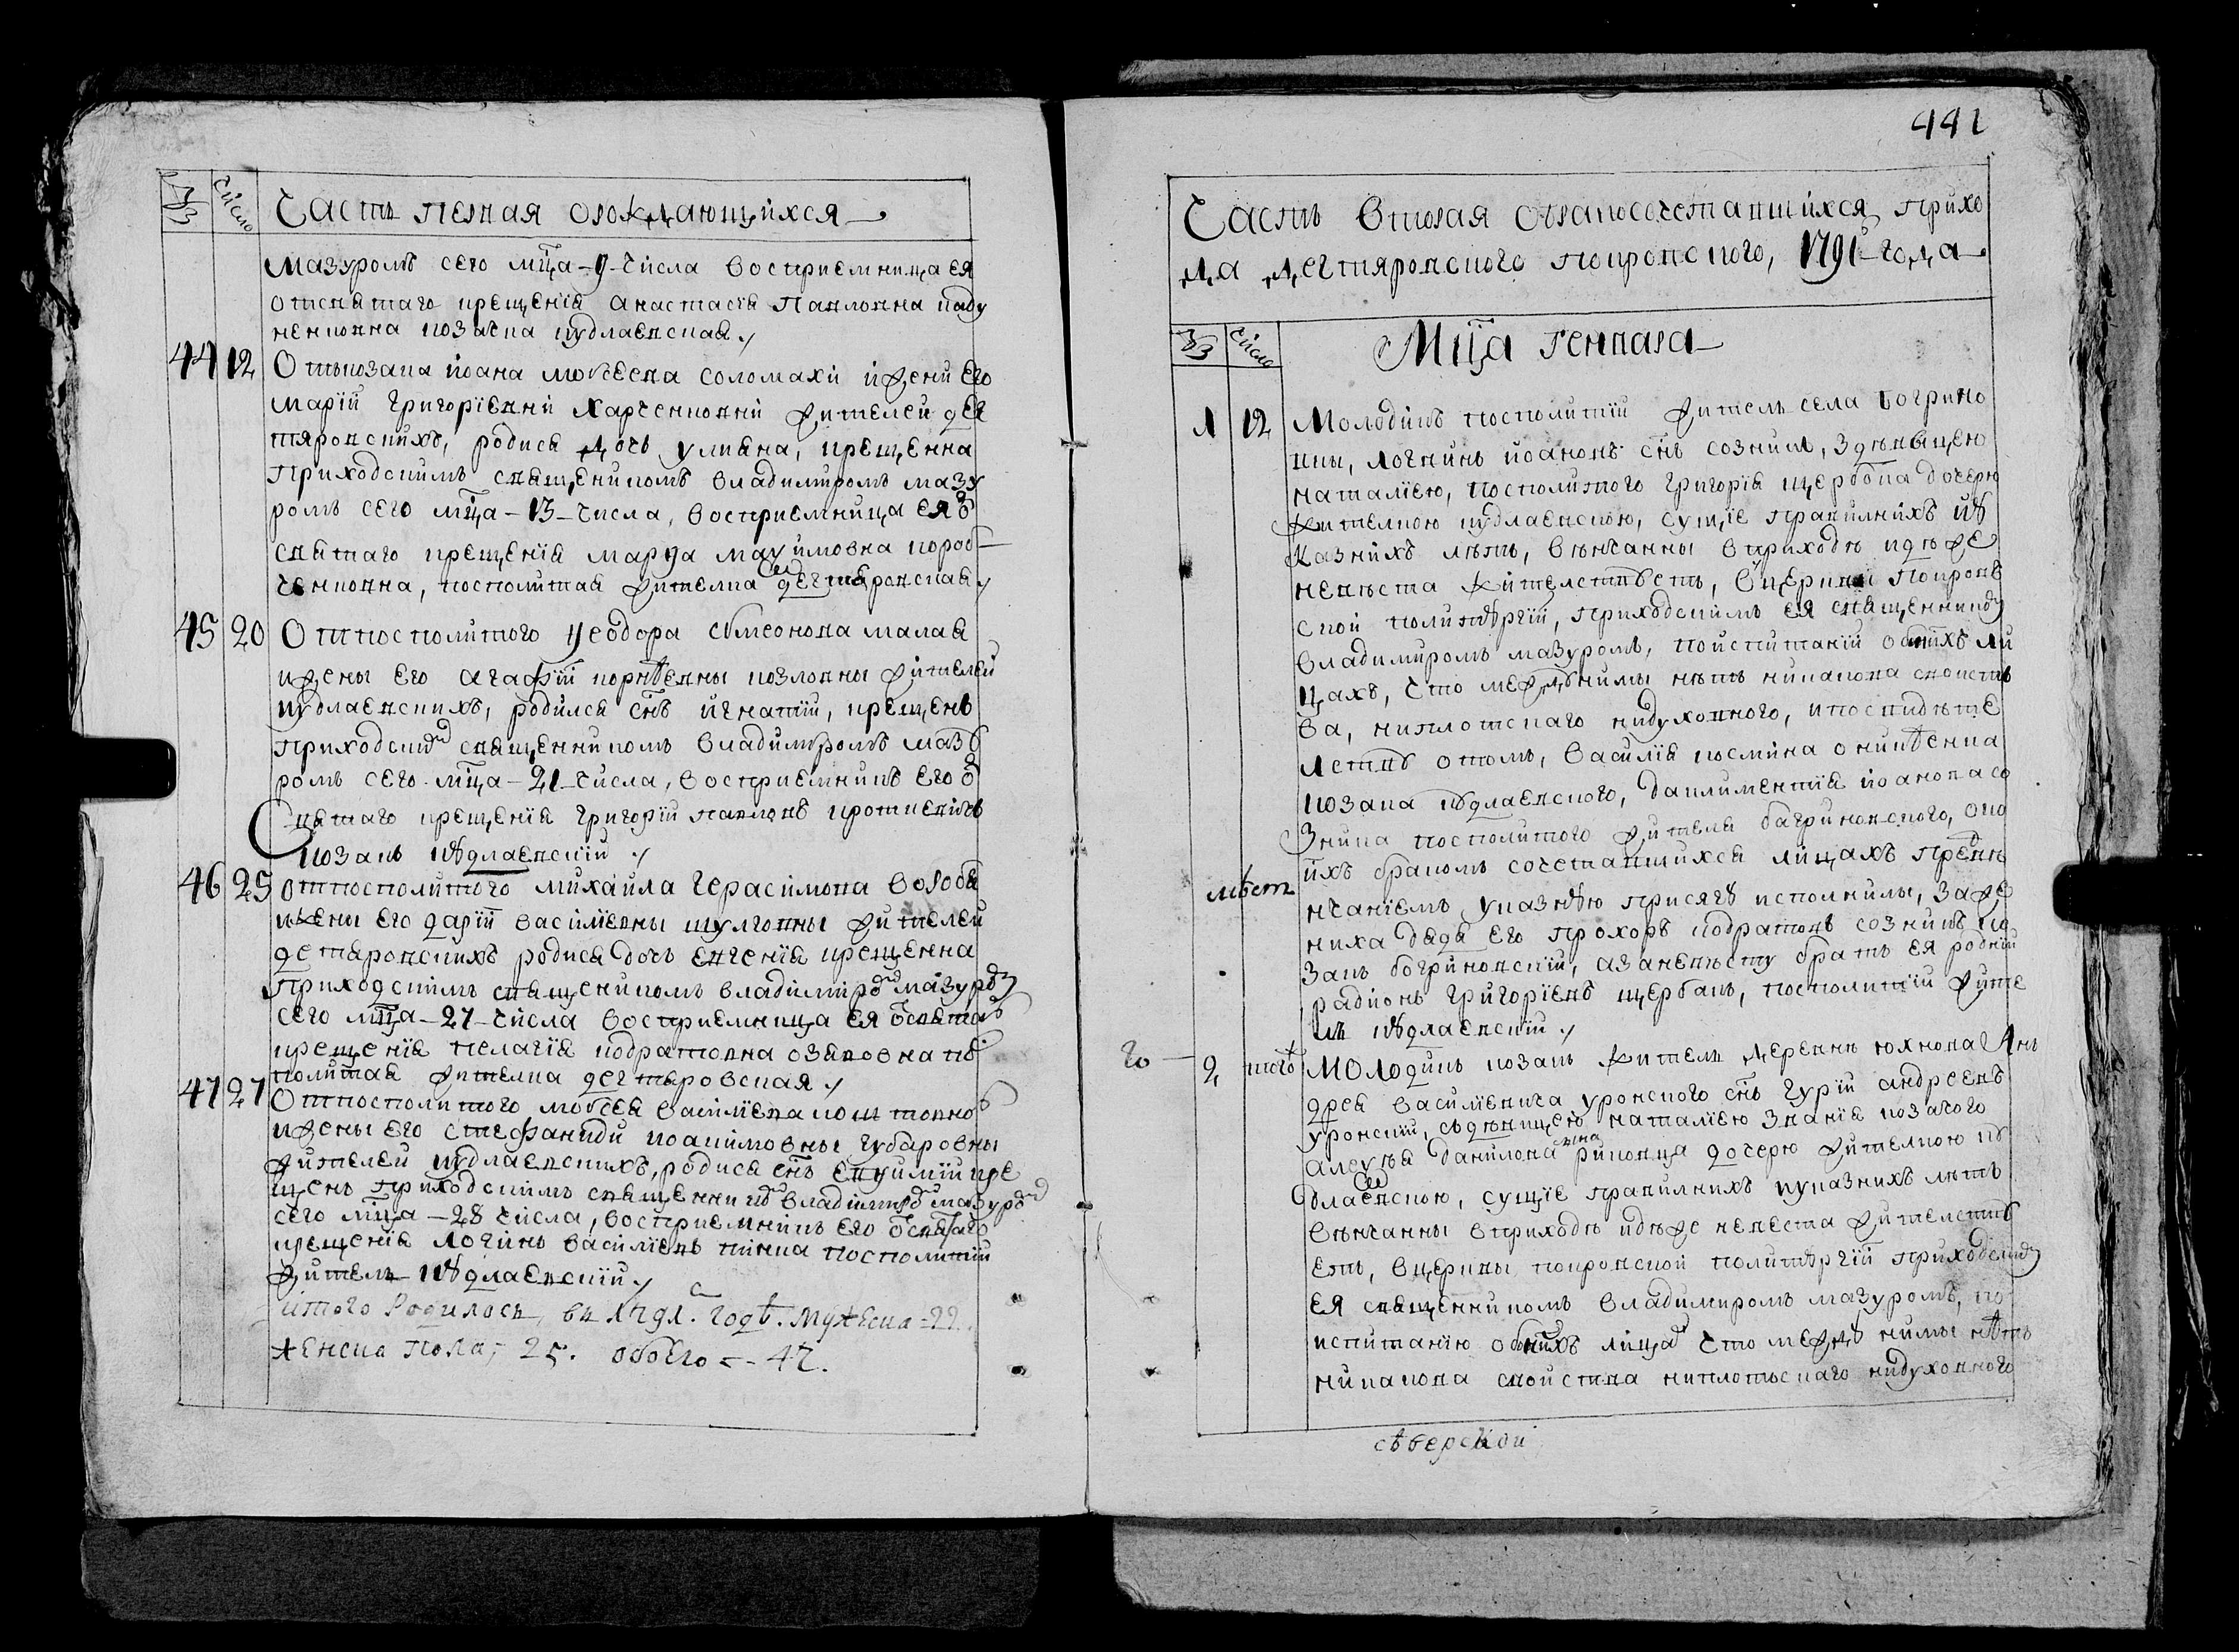 № Число Часть первая ораждающихся
мазуромъ сего мца – 9 – числа восприемница ея
отсвятаго крещенія анастасія Павловна
козачка кудлаевская
44 12 Отъкозака йоана мойсеева соломахи ижени его
маріи григоріевни харченковни жителей дег
тяровскихъ, родися дочь улияна, крещенна
приходскимъ священикомъ владимиромъ мазу
ромъ сего мца – 13 – числа, восприемница ея ѿ
святаго крещенія марѳа маѯимовна короб
ченковна, посполитая жителка дегтяровская
45 20 Отпосполитого ѳеодора сѵмеонова малая
ижены его агафіи корнѣевны козловны жителей
кудлаевскихъ, родился снъ игнатіи, крещенъ
приходским священникомъ владимиромъ мазу
ромъ сего мца – 21 – числа, восприемникъ его ѿ
Святаго крещенія григоріи павловъ
козакъ кудлаевскіи
46 25 отпосполитого михаила герасимова воробя
ижены его даріи василіевны шулговны жителей
детяровскихъ родися дочь евгенія крещенна
приходскимъ священикомъ владимиром мазуром
сего мца – 27 – числа восприемница ея ѿсвятаг
крещенія пелагія кодратовна пос
политая жителка дегтяровская
47 27 Отпосполитого мойсея василіева
ижены его стефаниди иоакимовны губаровны
жителей кудлаевскихъ, родися снъ евѳимии кре
щенъ приходскимъ священником владимиром мазуром
сего мца – 28 числа, восприемникъ его ѿсвятаго
крещенія логинъ василіевъ посполитіи
житель кудлаевскіи
итого Родилось, в годѣ. мужеска = 22.
женска пола = 25. обоего = 47.
441
Часть вторая обракосочетавшихся прихо
да дегтяровского покровского, 1791 года
№ Число Мца генваря
1 12 Молодикъ посполитіи житель села богрино
вки, логвинъ йоановъ снъ созникъ, здѣвицею
наталіею, посполитого григорія щербака дочерю
жителкою кудлаевскою, сущіе правилнихъ иу
казнихъ лѣтъ, вѣнчанны вприходѣ идѣже
невѣста жителствуетъ, вцеркви покровъ
ской політургіи, приходскимъ ея священником
владимиромъ мазуромъ, поиспитаніи обоихъ ли
цахъ, что междунимы нѣтъ никакова свойств
ва,ниплотскаго нидуховного, ипосвидѣте
лству отомъ, василія космина
козака кудлаевского, даклиментія йоанова со
зника посполитого жителя багриновского, око
ихъ бракомъ сочетавшихся лицахъ предвѣ
нчаніемъ указную присягу исполнилы, заже
ниха дядя его прохоръ кодратовъ созникъ ко
закъ богриновскіи, азаневѣсту братъ ея родніи
радіонъ григоріевъ щербакъ, посполитіи жите
ль кудлаевскіи
2 того Молодикъ козакъ житель деревнѣ юхнова Ан
дрея василіевича уровского снъ гуріи андреевъ
уровскіи, сьдѣвицею наталіею званія козачого
алеѯѣя данилова дочерю жителкою ку
длаевскою, сущіе правилнихъ иуказнихъ лѣтъ
вѣнчанны вприходѣ идѣже невеста жителству
етъ, вцеркви покровской политургіи приходским
ея священникомъ владимиромъ мазуромъ, по
испитанію обоихъ лицах что между нимы нѣтъ
никакова свойства ниплотьскаго нидуховного
сѣверской